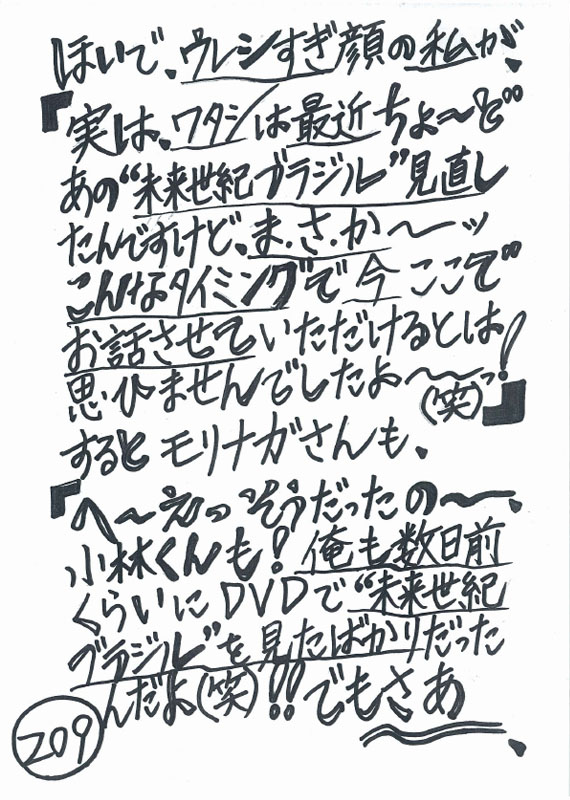 ほいで、ウレシすぎ顔の私が、
『実は、ワタシは最近ちょ〜ど
あの“未来世紀ブラジル”見直し
たんですけど、ま・さ・か〜ッ
こんなタイミングで今ここで
お話させていただけるとは
思ひませんでしたよ〜〜っ!
(笑)』
するとモリナガさんも、
『へ〜えっそうだったの〜、
小林くんも!俺も数日前
くらいにDVDで“未来世紀
ブラジル”を見たばかりだった
んだよ(笑)!!でもさあ、
209